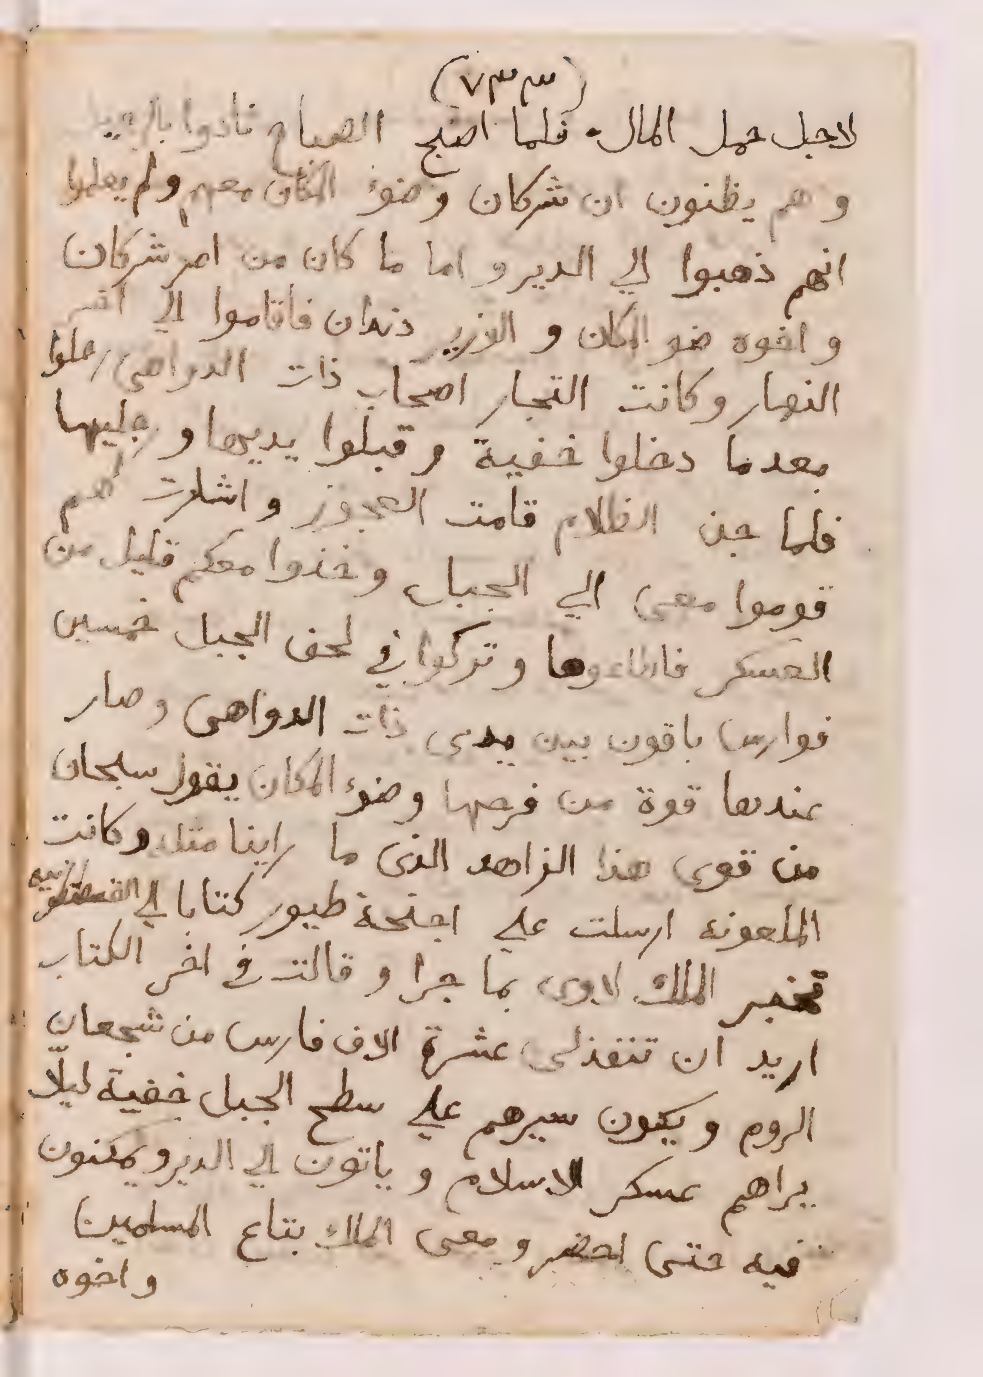 (٧٣٣)
لاجل حمل المال. فلما اصبح الصباح نادوا بالرحيل
و هم يظنون ان شركان و ضوء المكان معهم ولم يعلموا
انهم ذهبوا الي الدير و اما ما كان من امر شركان
و اخوه ضو المكان و الوزير دندان فاقاموا الي اخر
النهار و كانت التجار اصحاب ذات الدواهى رحلوا
بعدما دخلوا خفية و قبلوا يديها و رجليها
فلما جن الظلام قامت العجوز و اشارت لهم
قوموا معى الي الجبل و خذوا معكم قليل من
العسكر فاطاعوها و تركوا في لحف الجبل خمسين
فوارس باقون بين يدى ذات الدواهى و صار
عندها قوة من فرحها و ضوء المكان يقول سبحان
من قوى هذا الزاهد الذى ما راينا مثله و كانت
الملعونه ارسلت علي اجنحة طيور كتابا الي القسطنطنيه
تخبر الملك لاوى بما جرا و قالت في اخر الكتاب
اريد ان تنفذلى عشرة الاف فارس من شجعان
الروم و يكون سيرهم علي سطح الجبل خفية ليلّا
يراهم عسكر الاسلام و ياتون الي الدير و يمكنون
فيه حتى احضر و معى الملك بتاع المسلمين
و اخوه